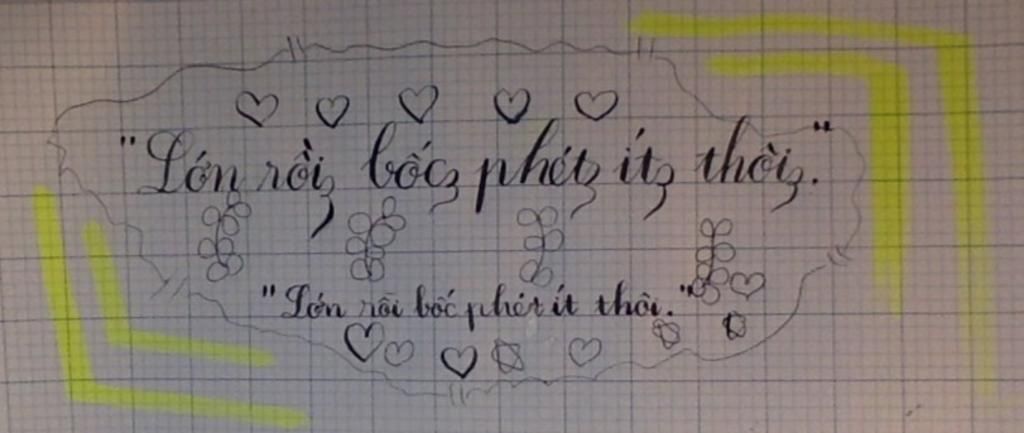 "Lớn rồi bốc phét ít thôi."
"Lớn rồi bốc phét ít thôi."